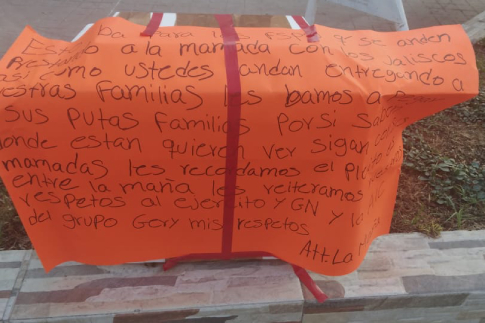 para los que se anden
Prestando a la mamada con los Jaliscos
asi como ustedes andan entregando a
nuestras Familias les bamos a
sus putas Familias Por si Saben
donde estan quieren ver sigan con
mamadas les recordamos el
entre la maña les reiteramos
respetos al ejercito y GN y la
del grupo Gory mis respetos
Att. La